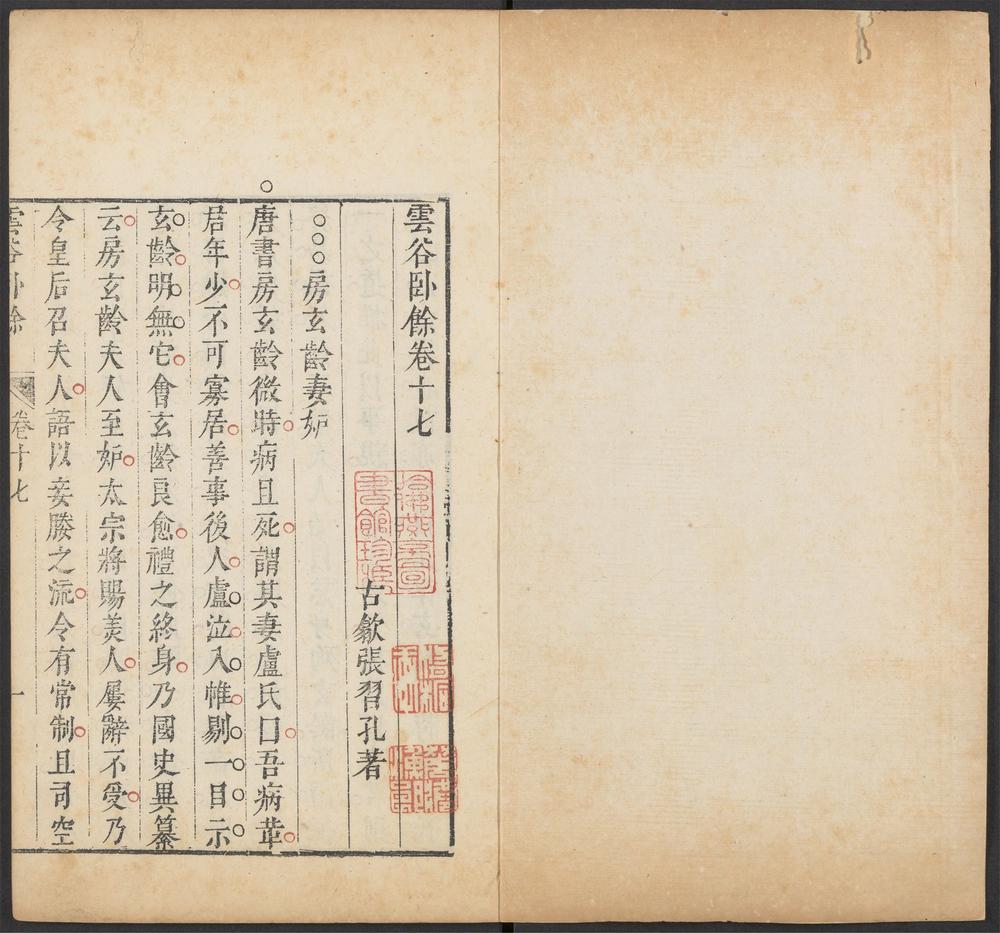 雲谷卧餘卷十七
古歙張習孔著
○○○房玄齡妻妒
唐書房玄齡微時病且死謂其妻盧氏曰吾病革
君年少不可寡居善事後人盧泣入帷剔一目示
玄齡明無它會玄齡良愈禮之終身乃國史異纂
云房玄齡夫人至妒太宗將賜美人屢辭不受乃
令皇后召夫人語以妾媵之流今有常制且司空
雲谷卧餘
卷十七
一